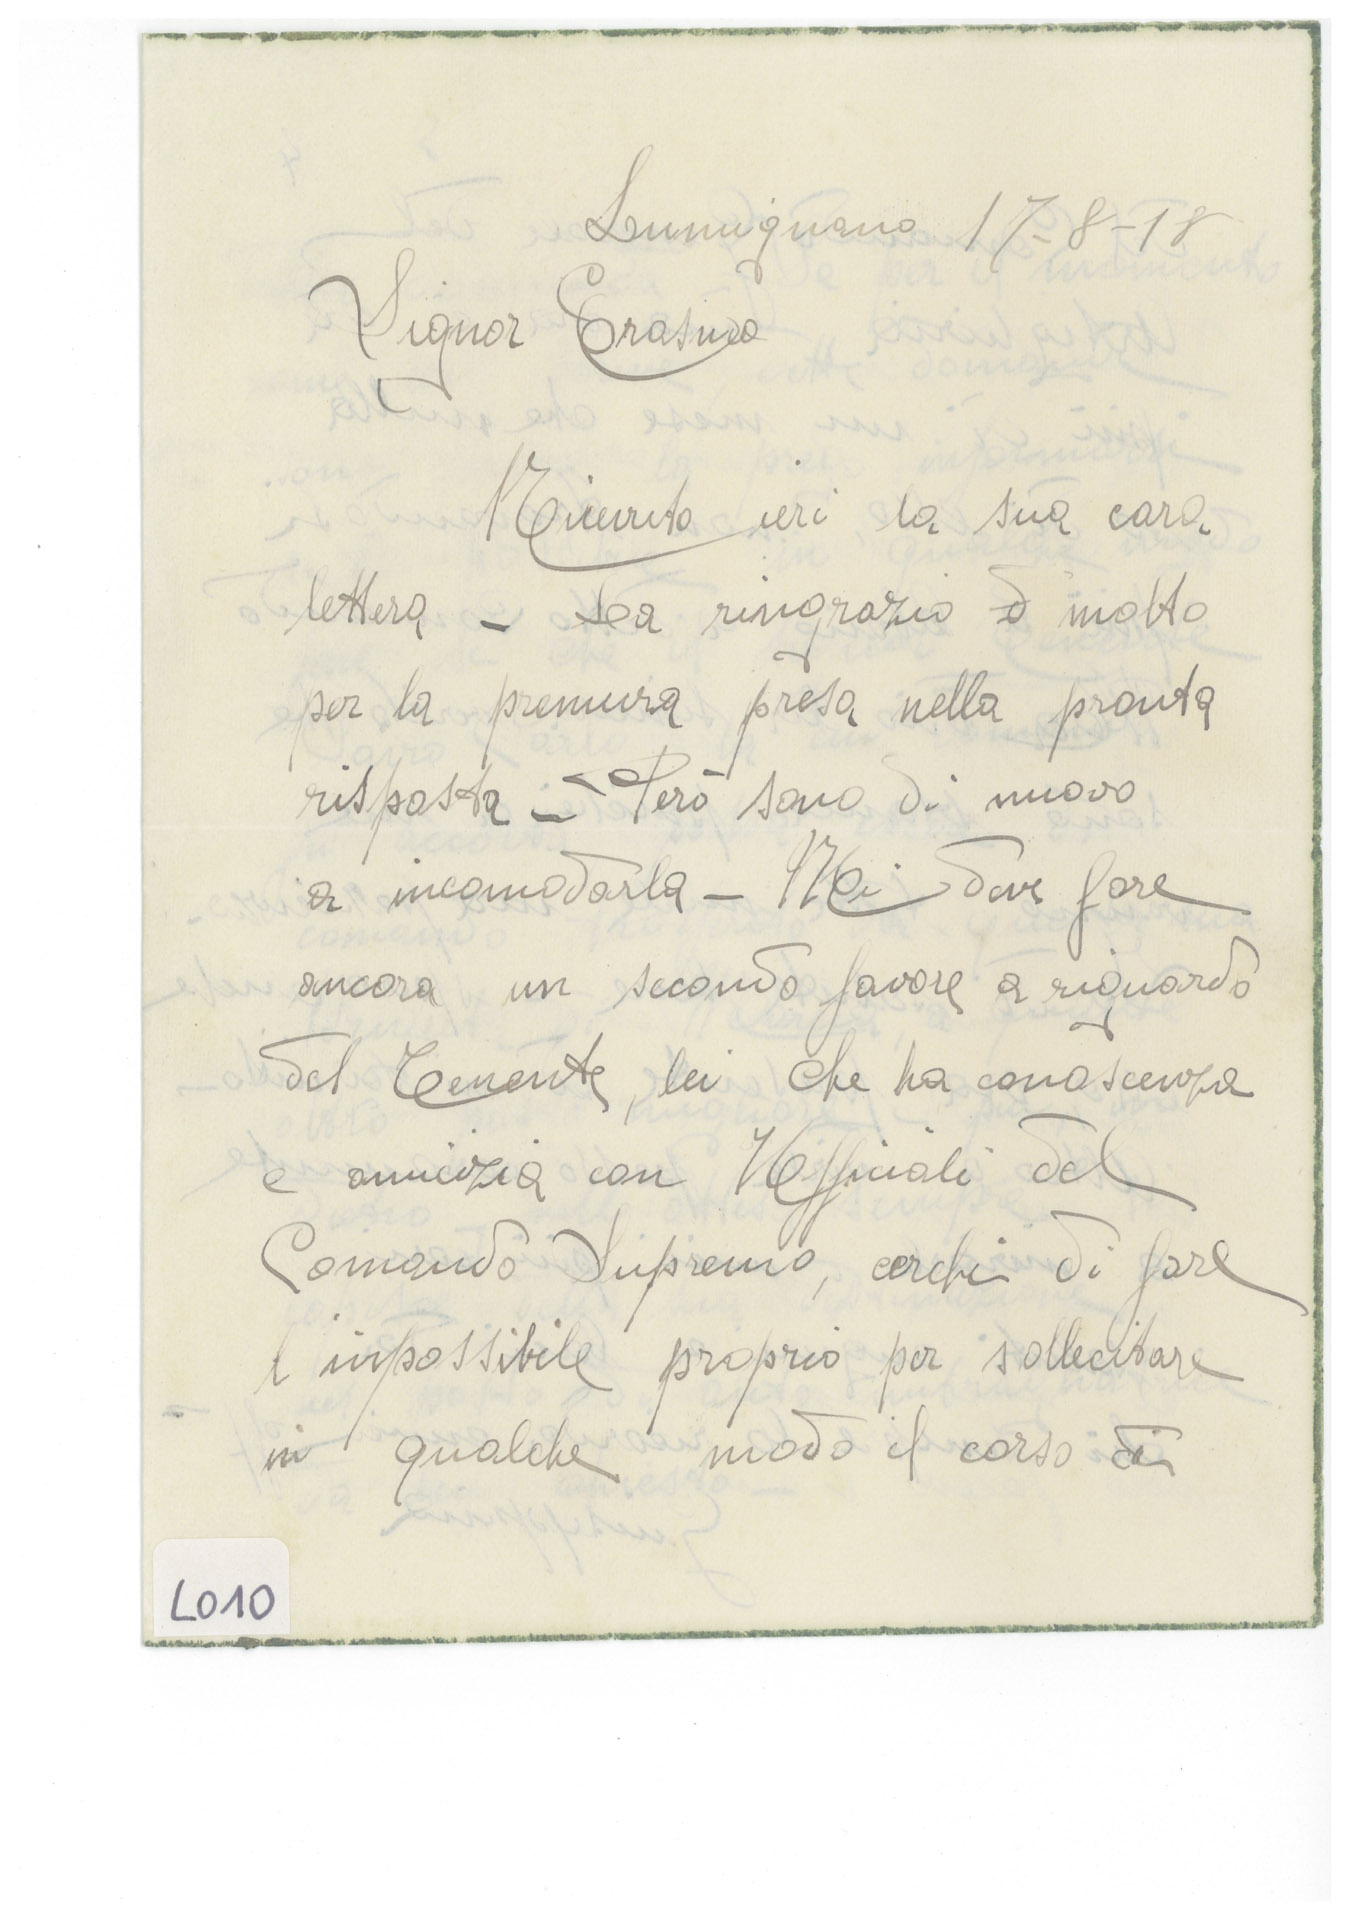 Lumignano 17-8-18
Signor Erasmo
Ricevuto ieri la sua cara
lettera - La ringrazio di molto
per la premura presa nella pronta
risposta - Però sono di nuovo
a incomodarla - Mi deve fare
ancora un secondo favore a riguardo
del Tenente, lei che ha conoscenza
e amicizia con Ufficiali del
Comando Supremo, cerchi di fare
l'inpossibile proprio per sollecitare
in qualche modo il corso di
L010